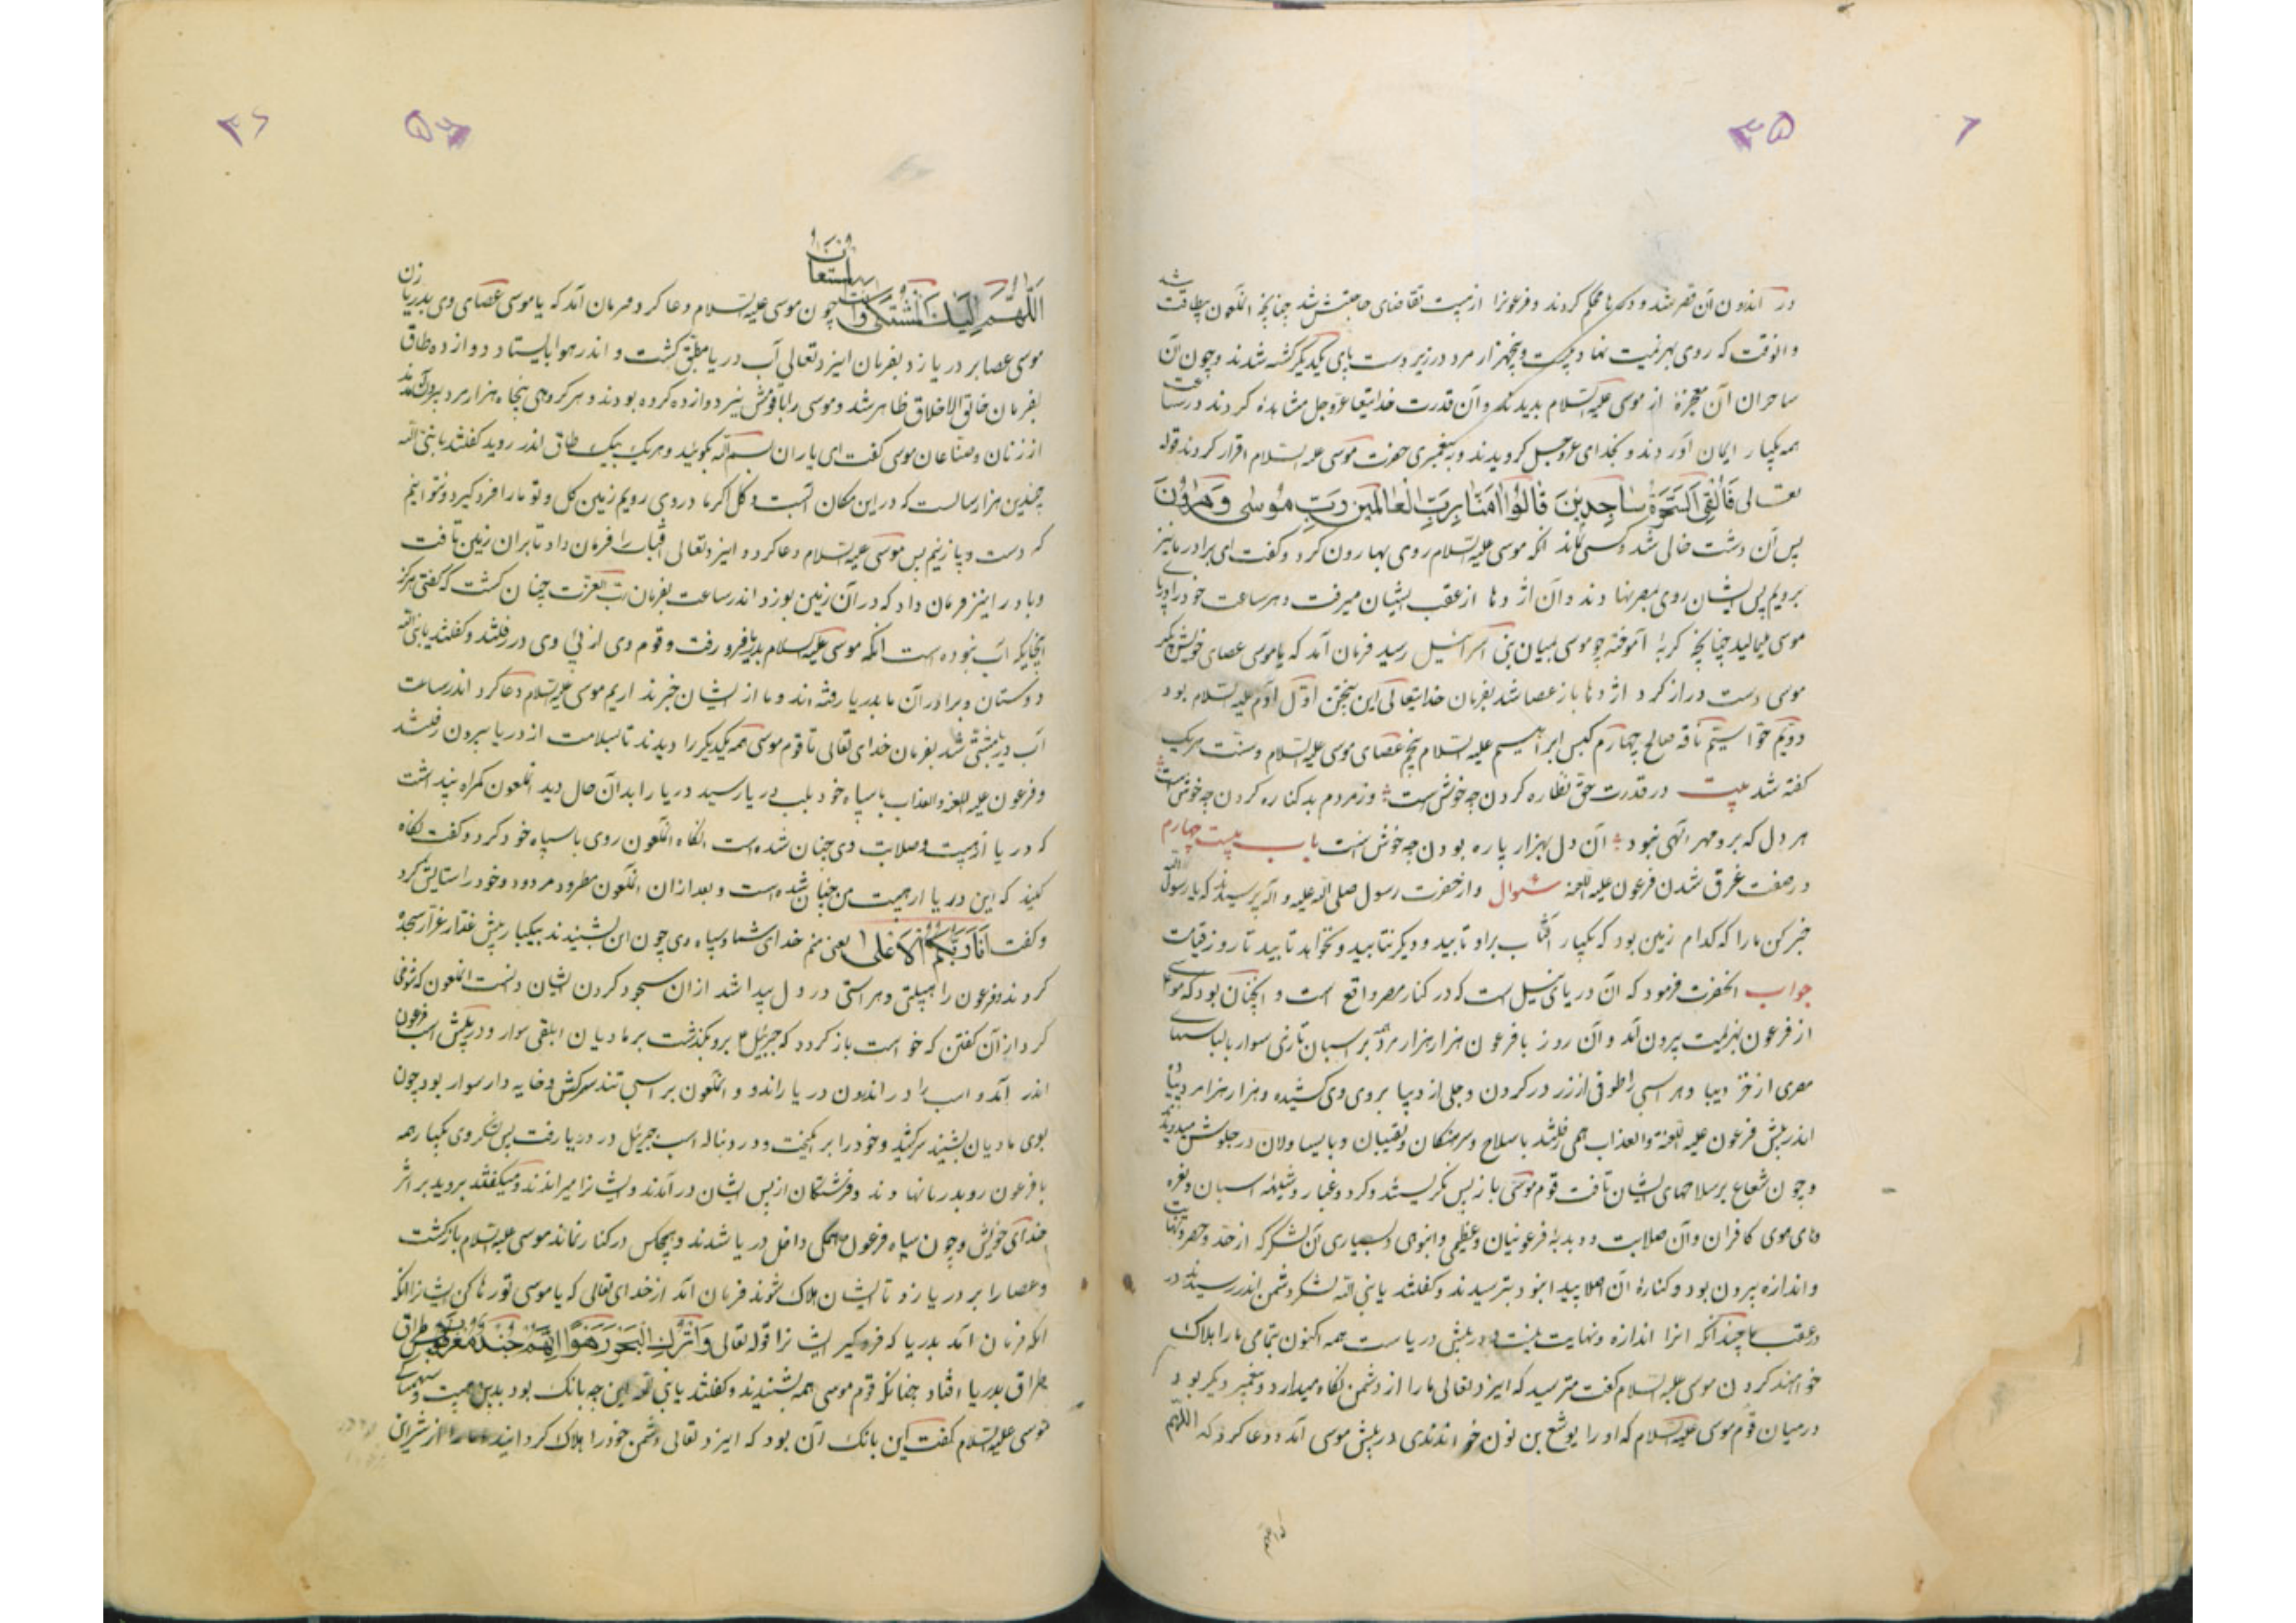 ۳۵
در اندرون آن قصر شد و درها محکم کردند و فرعونرا از هیبت تقاضای حاجتش شد چنانچه الملعون بیطاقت شد
و انوقت که روی بهزیمت نهاد بیست و پنجهزار مرد در زیر دست پای یکدیگر کشته شدند و چون آن
ساحران آن معجزهٔ از موسی علیه السلام بدیدند و آن قدرت خدایتعا عزوجل مشاهدهٔ کردند در ساعت
همه یکبار ایمان آوردند و بخدای عزوجل کرویدند و به پیغمبری حضرت موسی علیه السلام اقرار کردند قوله
تعالی فَاُلْقِیَ السَّحَرَةُ سٰاجِدِینَ قٰالُوا اٰمَنّٰا بِرَبِّ الْعٰالَمِینَ رَبِّ مُوسٰی وَهٰرُونَ
پس آن دشت خالی شد و کسی نماند انکه موسی علیه السلام روی بهارون کرد و کفت ای برادر ما نیز
برویم پس ایشان روی بمصر نهادند و آن اژدها از عقب ایشان میرفت و هر ساعت خود را در پای
موسی میمالید چنانچه کربهٔ آموخته چو موسی بمیان بنی اسرائیل رسید فرمان آمد که یا موسی عصای خویش بکیر
موسی دست دراز کرد اژدها باز عصا شد بفرمان خدایتعالی این پنجتن اوّل آدم علیه السلام بود
دویّم حوّا سیّم ناقه صالح چهارم کبش ابراهیم علیه السلام پنجم عصای موسی علیه السلام وسنّت هریک
کفته شد بیت در قدرت حق نظاره کردن چه خوش است وز مردم بد کناره کردن چه خوش است
هر دل که برو مهر الهی نبود آن دل بهزار پاره بودن چه خوش است باب بیست چهارم
در صفت غرق شدن فرعون علیه اللعنه سؤال و از حضرت رسول صلی الله علیه و اله پرسیدند که یا رسول الله
خبر کن ما را که کدام زمین بود که یکبار آفتاب براو تابید و دیکر نتابید و نخواهد تابید تا روز قیامت
جواب انحضرت فرمود که آن دریای نیل است که در کنار مصر واقع است و انچنان بود که موسی
از فرعون بهزیمت بیرون آمد و آن روز با فرعون هزار هزار مرد همه بر اسبان تازی سوار بالباسهای
مصری از خز و دیبا و هر اسبی را طوقی از زر در کردن و جلی از دیبا بر وی کشیده و هزار هزار مرد پیاده
اندر پیش فرعون علیه اللعنة والعذاب همی رفتند با سلاح و سرهنکان و نقیبان و یا یساولان در جلوش میدویدند
و چون شعاع بر سلاحهای ایشان تافت قوم موسی باز پس نکریستند و کرد و غبار و شیههٔ اسبان و نعره
های موی کافران و آن صلابت و دبدبهٔ فرعونیان و عظیمی و انبوهی و بسیاری آن لشکر که از حد و حصر و نهایت
و اندازه بیرون بود و کنارهٔ آن اصلا پیدا نبود بترسیدند و کفتند یا نبی الله لشکر دشمن اندر رسیدند در
در عقب ما چندانکه انرا اندازه و نهایت نیست و در پیش دریاست همه اکنون بتمامی ما را هلاک
خواهند کردن موسی علیه السلام کفت مترسید که ایزد تعالی ما را از دشمن نکاه میدارد و پیغمبر دیکر بود
در میان قوم موسی علیه السلام که او را یوشع بن نون خواندندی در پیش موسی آمد و دعا کرد که اللهم
۳۶
اَللّٰهُمَّ اِلَیْكَ الْمُشْتَکٰی وَاَنْتَ الْمُسْتَعٰانُ چون موسی علیه السلام دعا کرد فرمان آمد که یا موسی عصای وی بدریا زن
موسی عصا بر دریا زد بفرمان ایزد تعالی آب دریا مطبق کشت و اندر هوا بایستاد دوازده طاق
بفرمان خالق الاخلاق ظاهر شد و موسی را با قومش نیز دوازده کرده بودند و هر کروهی پنجاه هزار مرد بیرون آمدند
از زنان و صنّاعان موسی کفت ای یاران بسم الله بکوئید و هریک بیک طاق اندر روید کفتند یا نبی الله
چندین هزار سالست که در این مکان آبست و کل اکر ما در وی رویم زمین کل و لو ما را فرو کیرد و نتوانیم
که دست و پا زنیم پس موسی علیه السلام دعا کرد و ایزد تعالی آفتاب را فرمان داد تا بران زمین تافت
و باد را نیز فرمان داد که در آن زمین بوزد اندر ساعت بفرمان رب العزت چنان کشت که کفتی هرکز
اینجایکه آب نبوده است انکه موسی علیه السلام بدریا فرو رفت و قوم وی از پی وی در رفتند و کفتند یا نبی الله
دوستان و برادران ما بدریا رفته اند و ما از ایشان خبر نداریم موسی علیه السلام دعا کرد اندر ساعت
آب دریا مشبّک شد بفرمان خدای تعالی تا قوم موسی همه یکدیکر را دیدند تا بسلامت از دریا بیرون رفتند
و فرعون علیه اللعنة والعذاب با سپاه خود بلب دریا رسید دریا را بدآن حال دید الملعون کمراه پنداشت
که دریا از هیبت و صلابت وی چنان شده است انکاه الملعون روی با سپاه خود کرد و کفت نکاه
کنید که این دریا از هیبت من چنان شده است و بعد از ان الملعون مطرود مردود خود را ستایش کرد
و کفت اَنَا رَبُّکُمُ الْاَعْلٰی یعنی منم خدای شما و سپاه وی چون این بشنیدند بیکبار پیش غدّار غرّار سجدهٔ
کردند و فرعون را هیبتی و هراسی در دل پیدا شد از ان سجود کردن ایشان دانست الملعون که شوخی
کرد از آن کفتن که خواست باز کردد که جبرئیل ع برو بکذشت بر مادیان ابلقی سوار و در پیش اسب فرعون
اندر آمد و اسب را در اندرون دریا راند و الملعون بر اسبی تند سرکش و خایه دار سوار بود چون
بوی مادیان بشنید سرکشید و خود را برانکیخت و در دنباله اسب جبرئیل در دریا رفت پس لشکر وی بیکبار همه
با فرعون رو بدریا نهادند و فرشتکان از پس ایشان در آمدند و ایشانرا میراندند و میکفتند بروید بر اثر
خدای خویش و چون سپاه فرعون همکی داخل دریا شدند و هیچکس در کنار نماند موسی علیه السلام بازکشت
و عصا را بر دریا زد تا ایشان هلاک شوند فرمان آمد از خدای تعالی که یا موسی تو رها کن ایشانرا انکه
انکه فرمان آمد بدریا که فرو کیر ایشانرا قوله تعالی وَاتْرُكِ الْبَحْرَ رَهْوًا اِنَّهُمْ جُنْدٌ مُغْرَقُونَ طراق
طراق بدریا افتاد چنانکه قوم موسی همه بشنیدند و کفتند یا نبی الله این چه بانک بود بدین هیبت و سهمناکی
موسی علیه السلام کفت این بانک آن بود که ایزد تعالی دشمن خود را هلاک کردانید و ما را از شر ایشان